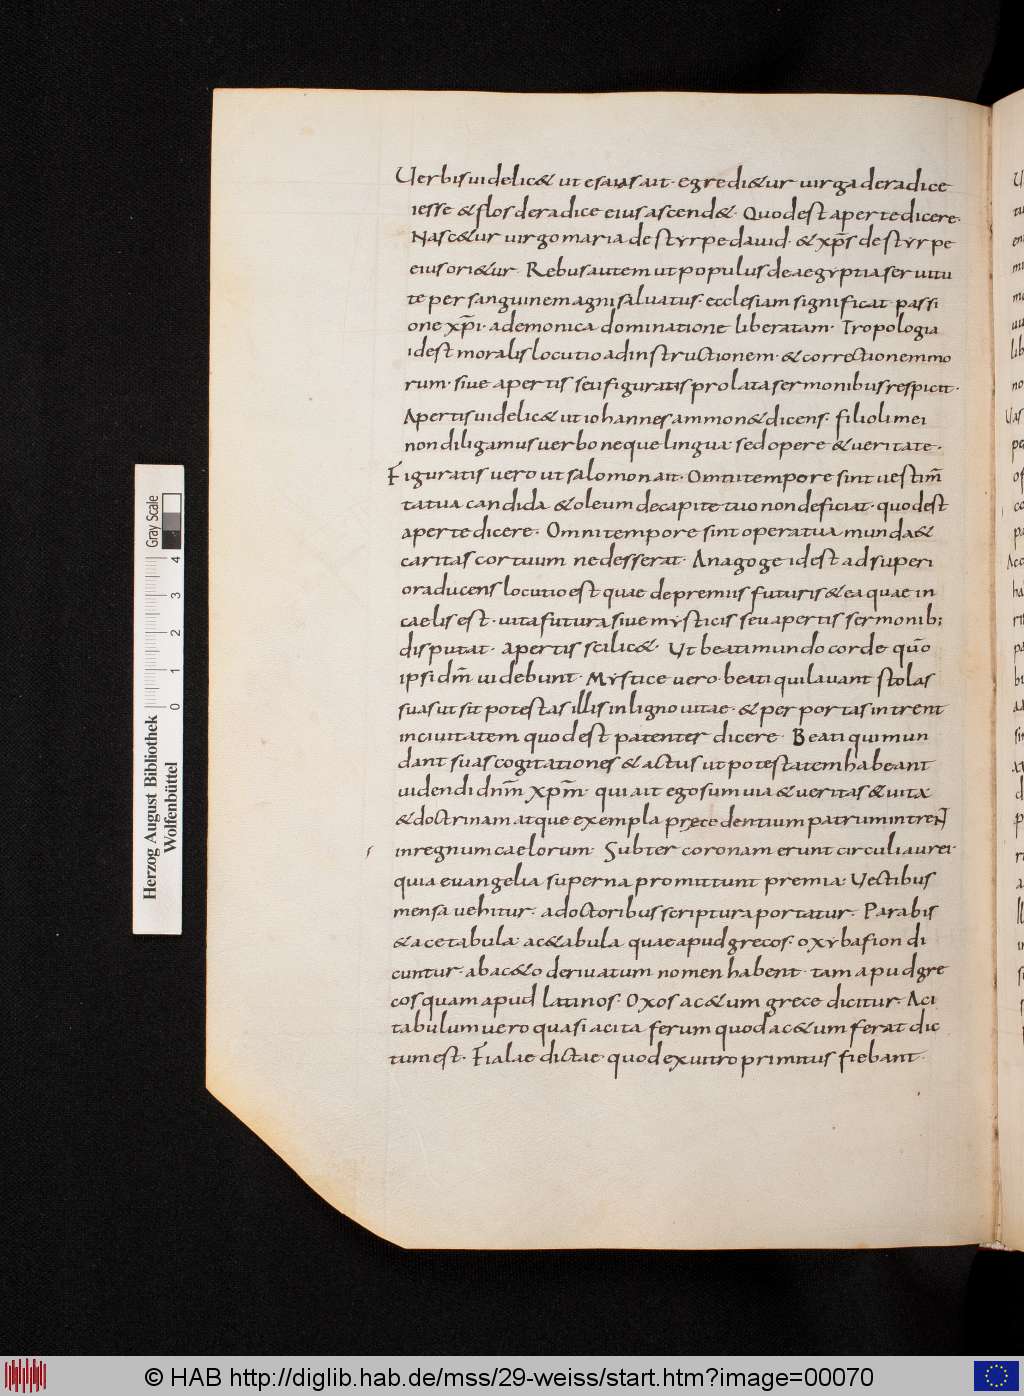 Uerbis uidelic& ut esaias ait· egredi&ur uirga de radice
iesse & flos de radice eius ascend&· Quod est aperte dicere·
Nasc&ur uirgo maria de styrpe dauid· & xp̄s de styrpe
eius ori&ur· Rebus autem ut populus de aegyptia seruitu
te per sanguinem agni saluatus· ecclesiam significat passi
one xp̄i· a demonica dominatione liberatam· Tropologia
id est moralis locutio ad instructionem· & correctionem mo
rum· siue apertis seu figuratis prolata sermonibus respicit·
Apertis uidelic& ut iohannes ammon& dicens· filioli mei
non diligamus uerbo neque lingua· sed opere & ueritate·
Figuratis uero ut salomon ait· Omni tempore sint uestim̄
ta tua candida & oleum de capite tuo non deficiat· quod est
aperte dicere· Omni tempore sint opera tua munda &
caritas cor tuum ne desserat· Anagoge id est ad superi
ora ducens locutio est quae de premiis futuris & ea quae in
caelis est· uita futura siue mysticis seu apertis sermonib;
disputat· apertis scilic&· Ut beati mundo corde qūo
ipsi dm̄ uidebunt· Mystice uero· beati qui lauant stolas
suas ut sit potestas illis in ligno uitae· & per portas intrent
in ciuitatem quod est patenter dicere· Beati qui mun
dant suas cogitationes & actus ut potestatem habeant
uidendi dnm̄ xpm̄ qui ait ego sum uia & ueritas & uita
& doctrinam atque exempla precedentium patrum intreNT
in regnum caelorum· Subter coronam erunt circuli aurei·
quia euangelia superna promittunt premia· Uectibus
mensa uehitur· a doctoribus scriptura portatur· Parabis
& acetabula· ac&abula quae apud grecos· oxybafion di
cuntur· ab ac&o deriuatum nomen habent· tam apud gre
cos quam apud latinos· Oxos ac&um grece dicitur· Aci
tabulum uero quasi acita ferum quod ac&um ferat dic
tum est· Fialae dictae quod ex uitro primitus fiebant·
Herzog August Bibliothek
Wolfenbüttel
Gray Scale
0 1 2 3 4
© HAB http://diglib.hab.de/mss/29-weiss/start.htm?image=00070